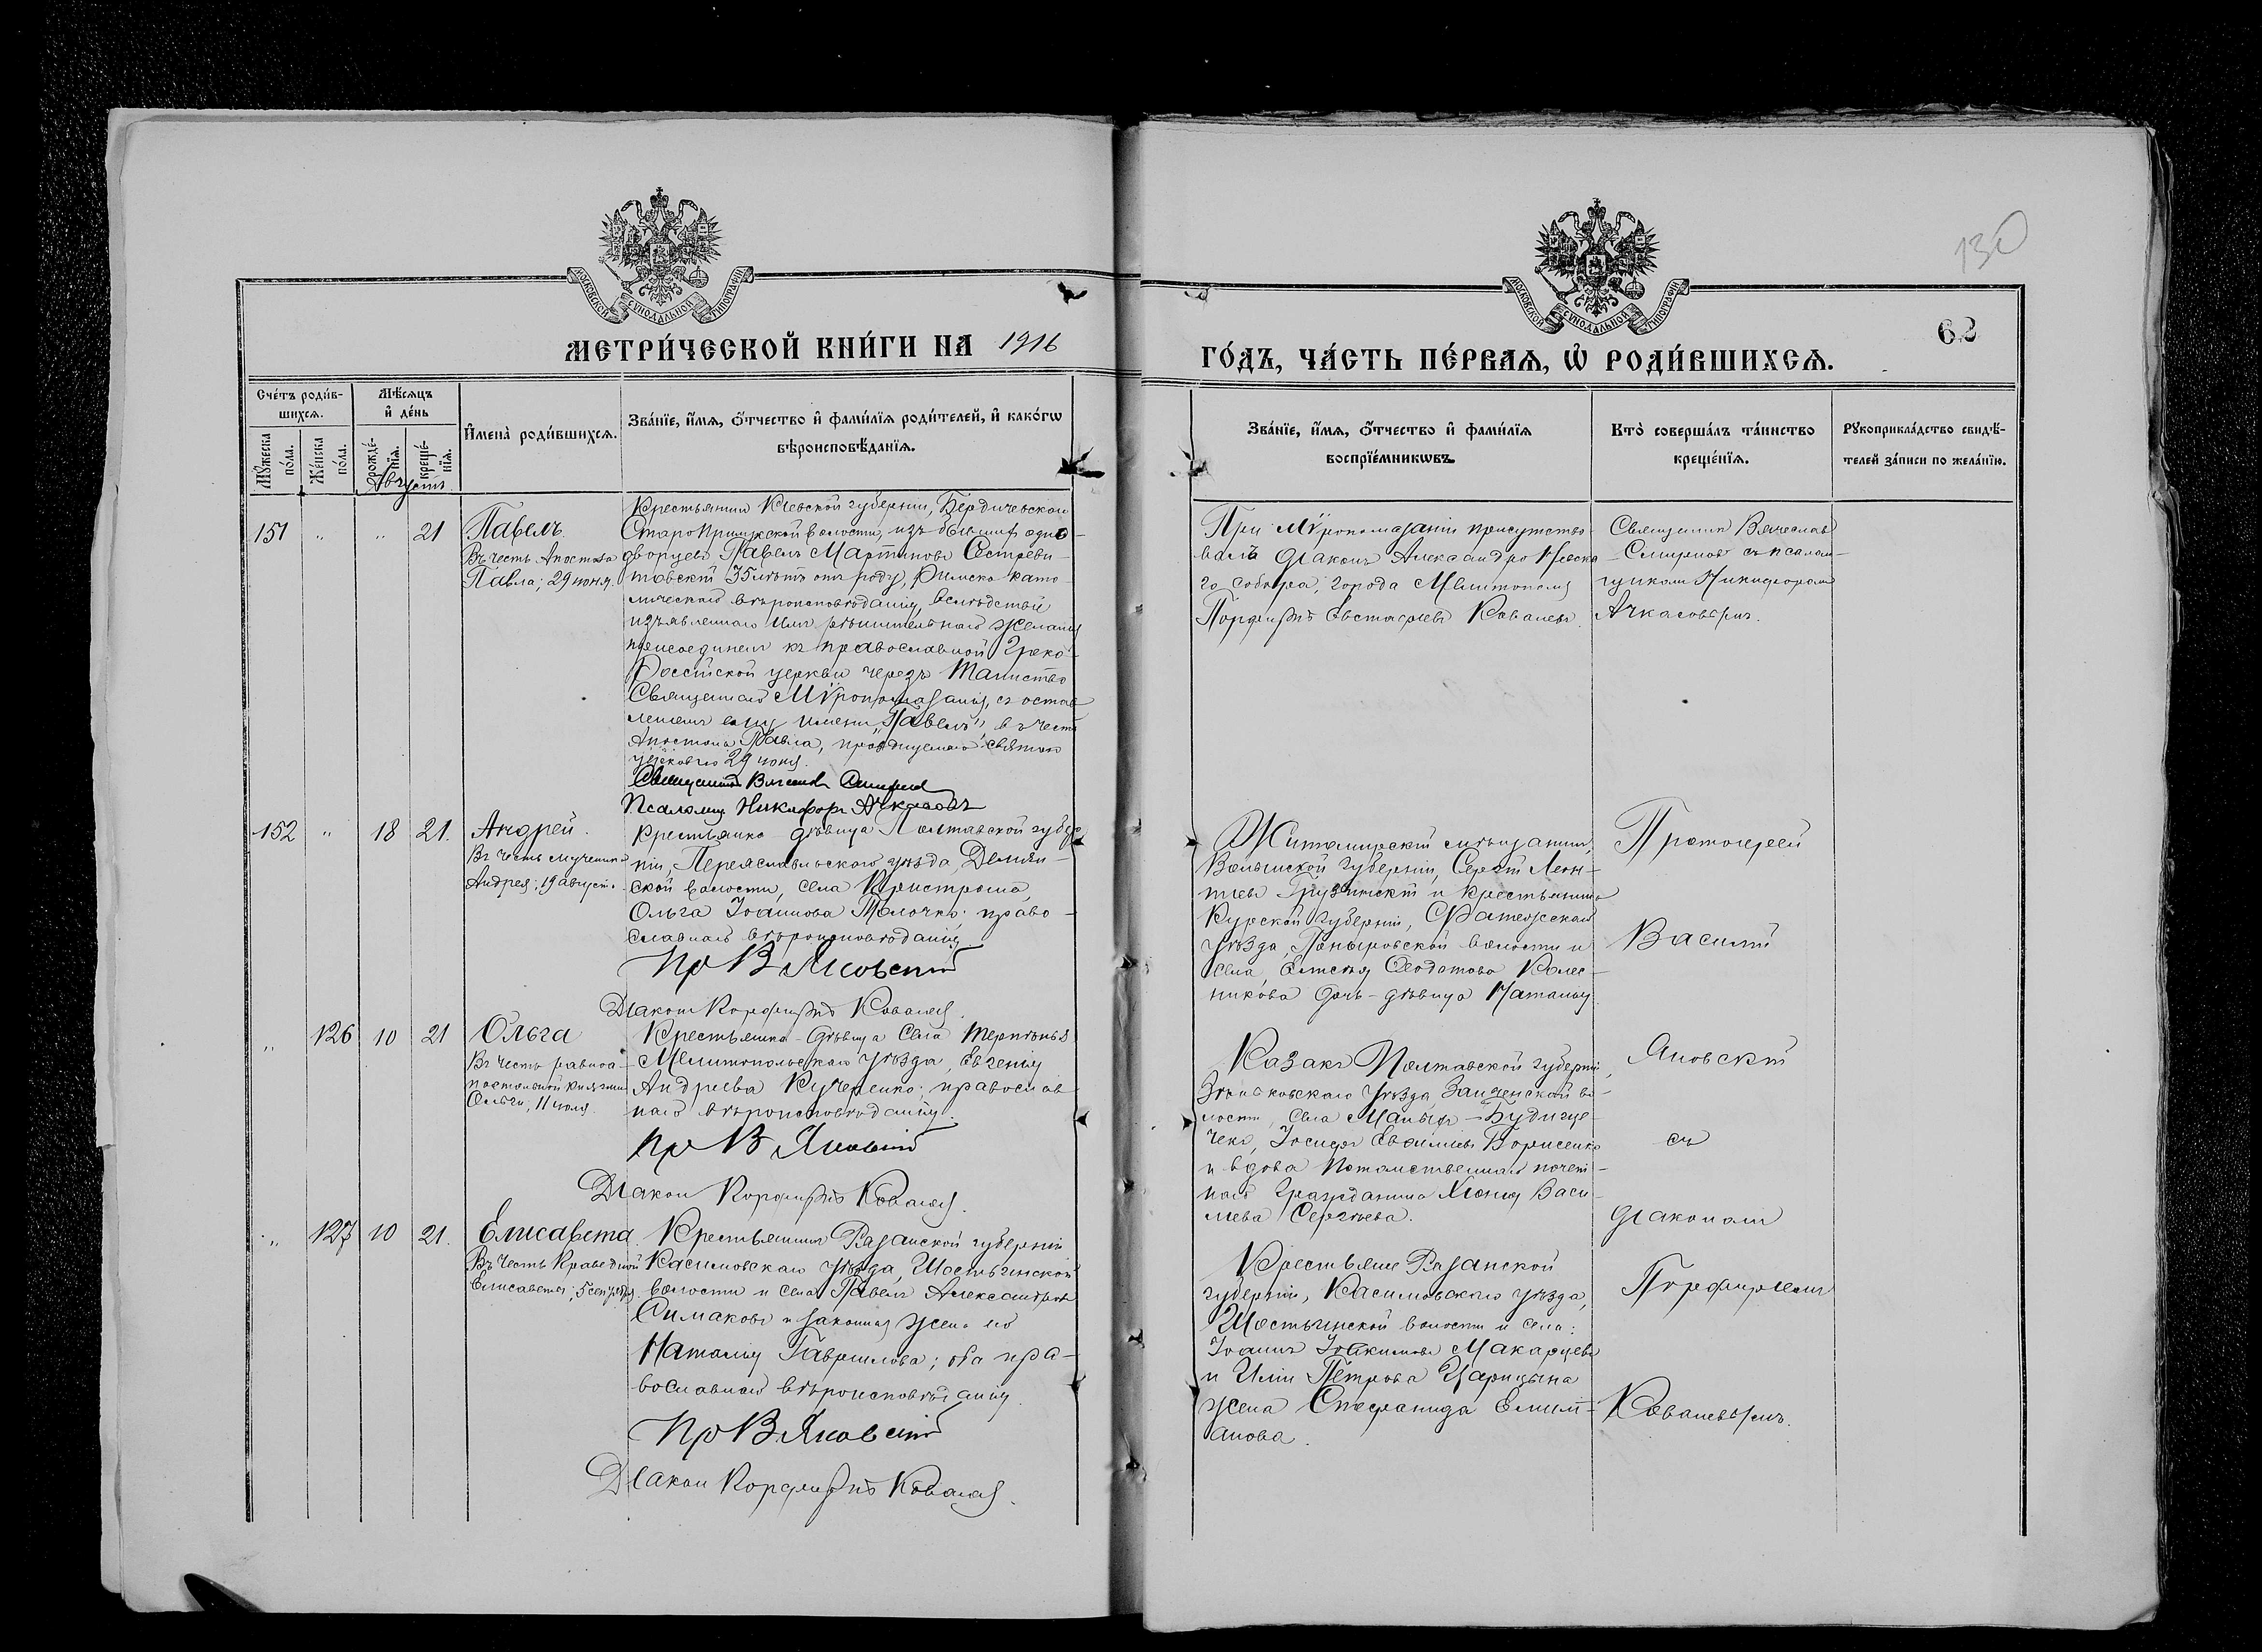 130
МОСКОВСКОЙ СѴНОДАЛЬНОЙ ТИПОГРАФІИ
МОСКОВСКОЙ СѴНОДАЛЬНОЙ ТИПОГРАФІИ
62
МЕТРИ́ЧЕСКОЙ КНИ́ГИ НА 1916
ГО́ДЪ, ЧА́СТЬ ПЕ́РВАѦ, Ѡ҆ РОДИ́ВШИХСѦ.
Сче́тъ роди́в-
шихсѧ.
Мꙋ́жеска по́ла.
Же́нска по́ла.
Мѣ́сѧцъ
и҆ де́нь
рожде́-
нїѧ.
креще́-
нїѧ.
Августъ
И҆мена̀ роди́вшихсѧ.
Зва́нїе, и҆́мѧ, ѻ҆́тчество и҆ фами́лїѧ роди́телей, и҆ како́гѡ
вѣроисповѣ́данїѧ.
Зва́нїе, и҆́мѧ, ѻ҆́тчество и҆ фами́лїѧ
воспрїе́мникѡвъ.
Кто̀ соверша́лъ та́инство
креще́нїѧ.
Рꙋкоприкла́дство свидѣ́-
телей за́писи по жела́нїю.
151 " " 21
Павелъ.
Въ честь Апостола
Павла; 29 июня.
Крестьянин Кіевской губерніи, Бердичевской
волости, изъ бывшихъ одно-
дворцевъ Павелъ Мартиновъ
35 лѣтъ отъ роду, Римско-като-
лическаго вѣроисповѣданія, вслѣдствіе
изъявленнаго имъ рѣшительнаго желанія
присоединен къ православной Греко-
Россійской церкви черезъ Таинство
Священнаго Мѵропомазанія, съ остав-
леніемъ ему имени „Павелъ", въ честь
Апостола Павла, празднуемаго Святою
церковью 29 июня.
Священникъ Вячеславъ Смирнов
Псаломщ. Никифоръ Ачкасовъ
При Мѵропомазаніи присутство-
валъ діаконъ Александро-Невска-
го собора, города Мелитополя
Порфирій Евстафіевъ Ковалевъ.
Священник Вячеслав
Смирновъ съ псалом-
щикомъ Никифоромъ
Ачкасовымъ.
152 " 18 21.
Андрей.
Въ честь мученика
Андрея; 19 август.
Крестьянка-дѣвица Полтавской губер-
ніи, Переяславльскаго уѣзда, Демян-
ской волости, села
Ольга Іоаннова Толочко; право-
славнаго вѣроисповѣданія.
Пр В Яновскій
Діакон Порфирій Ковалев.
Житомирскій мѣщанин,
Волынской губерніи, Сергѣй Леон-
тіевъ Грузинскій и крестьянина
Курской губерніи, Фатежскаго
уѣзда, Поныровской волости и
села, Алексѣя Ѳеодотова Колес-
никова дочь-дѣвица Наталія.
Протоіерей
Василій
Яновскій
съ
діакономъ
Порфиріемъ
Ковалевымъ.
" 126 10 21
Ольга
Въ честь равноа-
постольной княгини
Ольги, 11 июля.
Крестьянка-дѣвица села Терпѣнья
Мелитопольскаго уѣзда, Евгенія
Андреева Кучеренко; православ-
наго вѣроисповѣданія.
Пр В Яновскій
Діакон Порфирій Ковалев.
Казакъ Полтавской губерніи,
Зѣньковскаго уѣзда, во-
лости, села Малыхъ-Будище-
чекъ, Іосифъ Борисенко
и вдова потомственнаго почет-
наго гражданина Васи-
льева Сергѣева.
" 127 10 21.
Елисавета
Въ честь Праведной
Елисаветы; 5 сентября.
Крестьянинъ Рязанской губерніи
Касимовскаго уѣзда, Шостьинской
волости и села Павелъ Александровъ
Симаковъ и законная жена его
Наталія Гаврилова; оба пра-
вославнаго вѣроисповѣданія.
Пр В Яновскій
Діакон Порфирій Ковалев.
Крестьяне Рязанской
губерніи, Касимовскаго уѣзда,
Шостьинской волости и села:
Іоаннъ Іоакимовъ Макарцевъ
и Иліи Петрова Царицына
жена Стефанида Емилі-
анова.